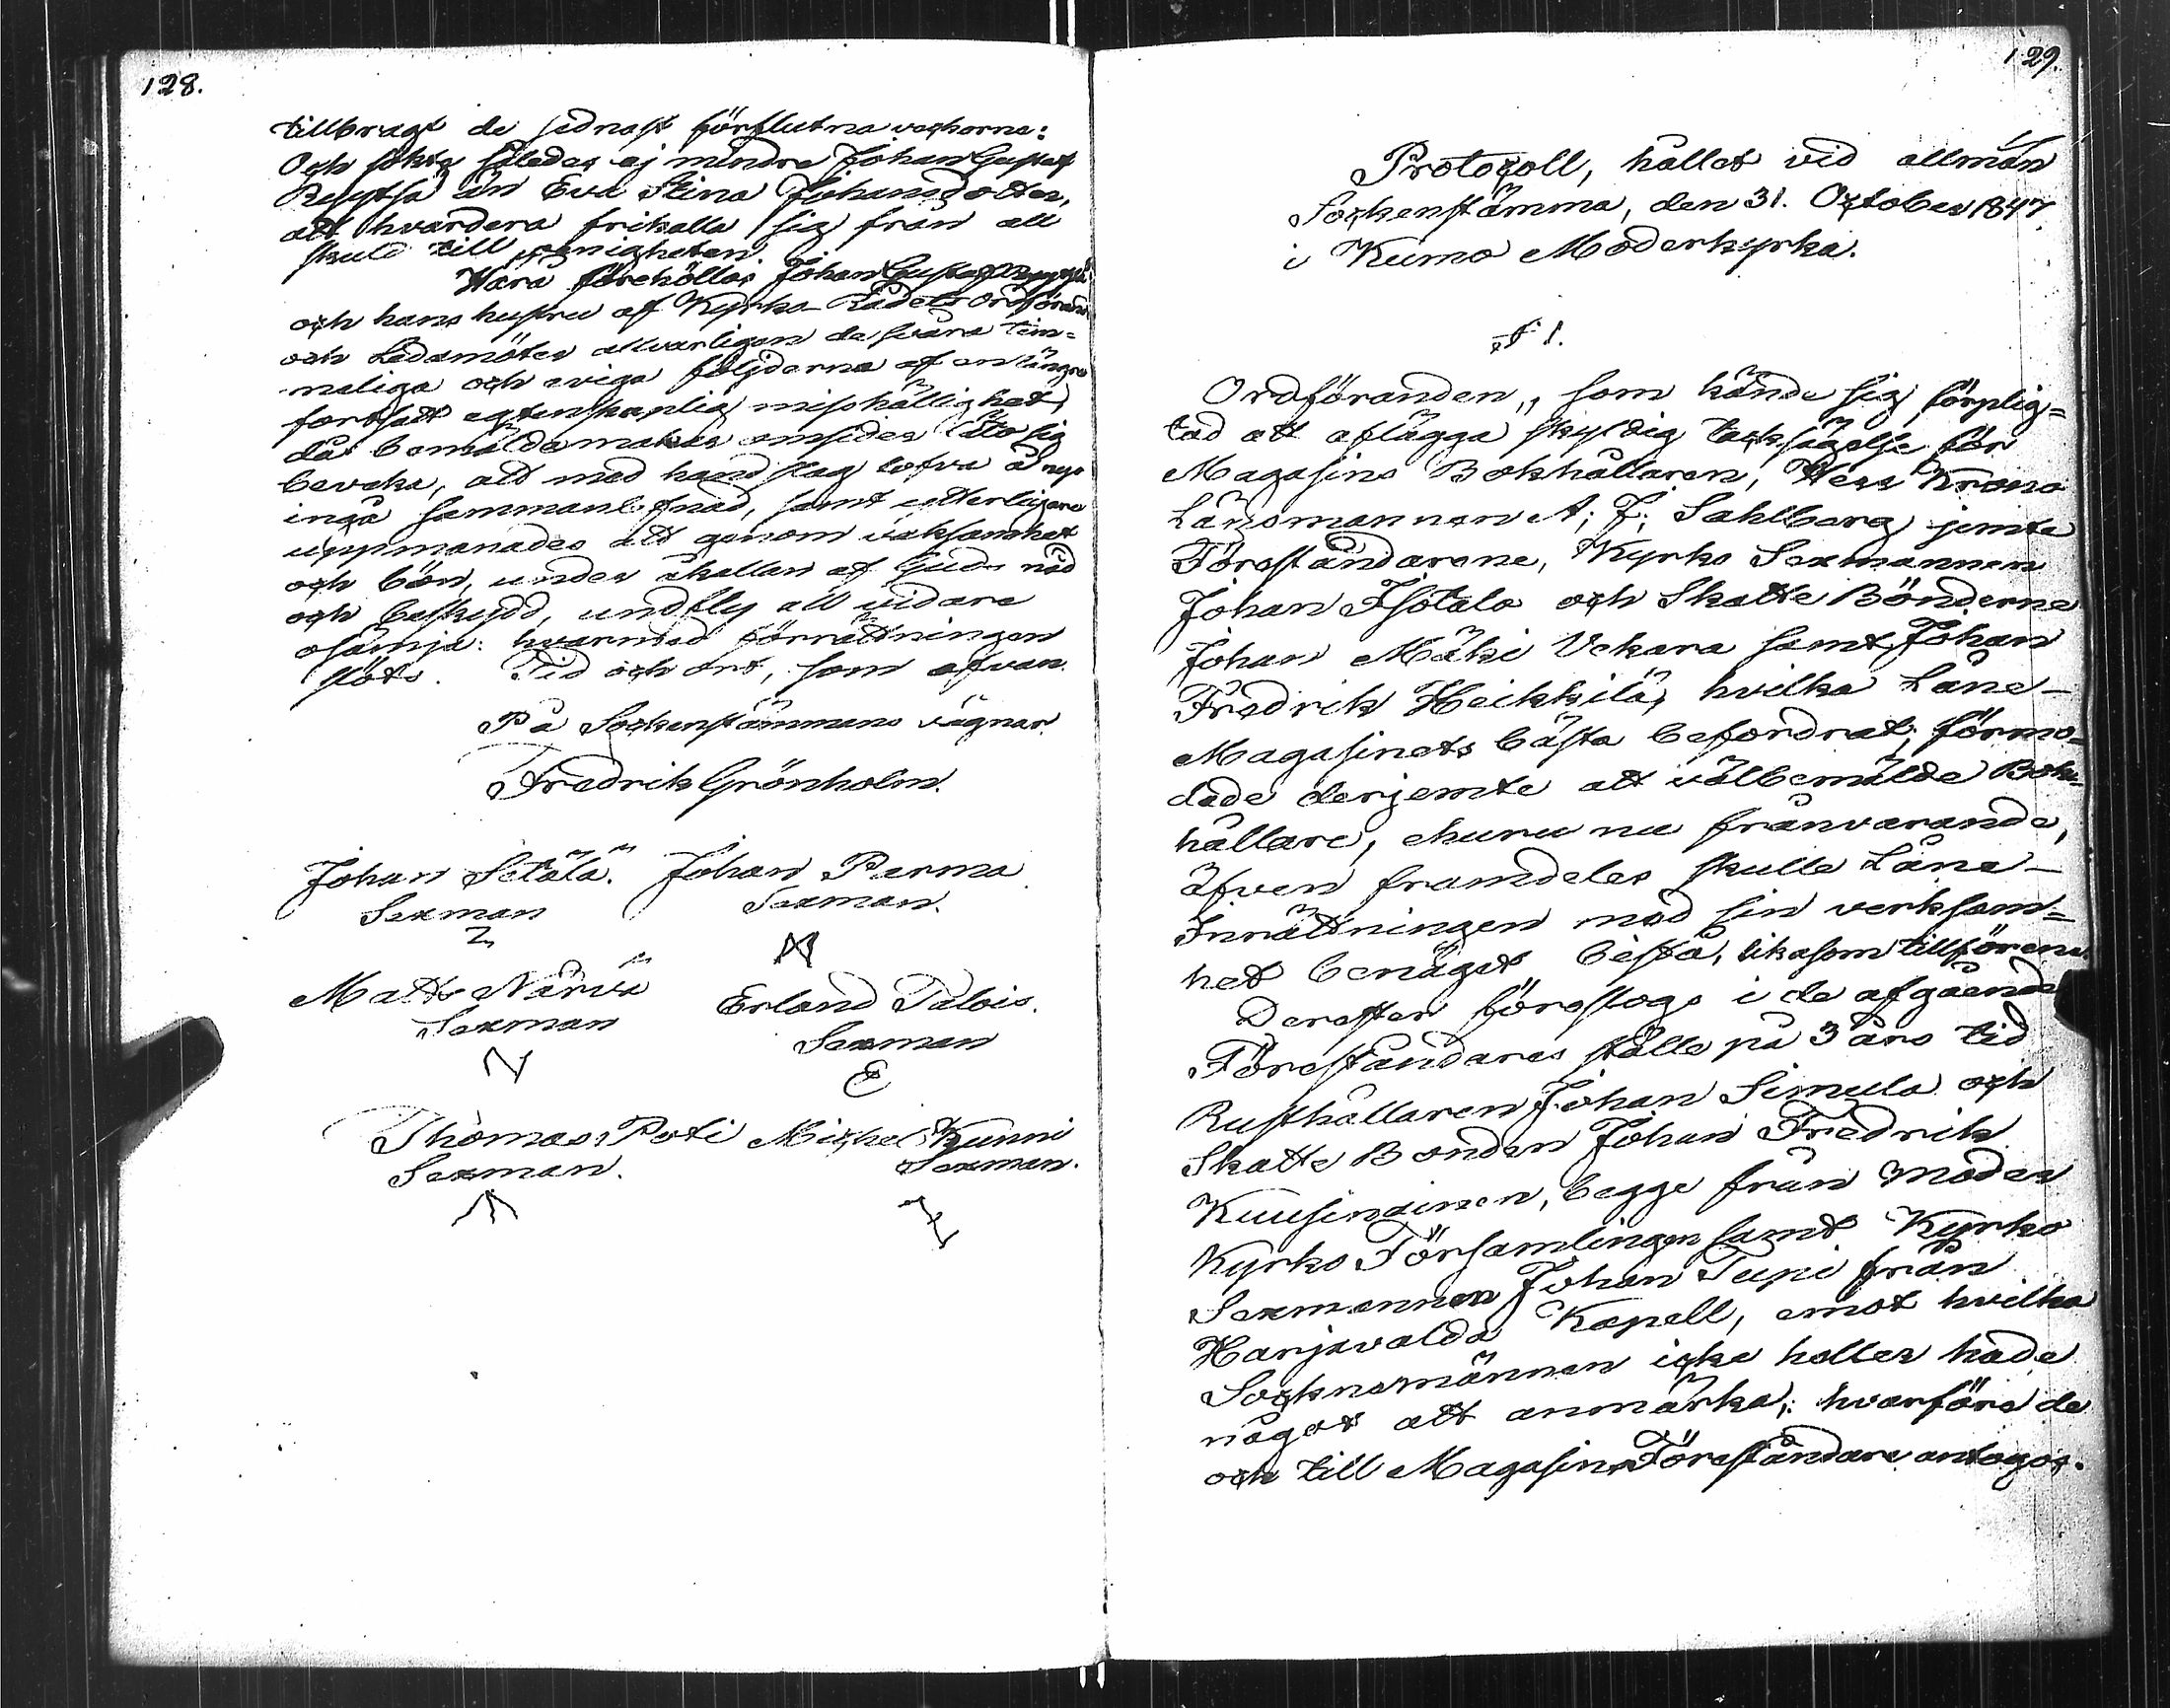 128.
tillbragt de sednast förflutna veckorna:
Och sökte således ej mindre Johan Gustaf
än Eva Stina Johansdotter,
att hvardera frikalla sig från all
skuld till oenigheten.
Håra förehöllos Johan Gustaf
och hans hustru af Kyrko-Rådets Ordförande
och Ledamöter allvarligen de svåra tim-
meliga och eviga följderna af en längre
fortsatt egtenskaplig misshällighet,
då bemälde makar omsider läto sig
beveka, att med handslag lofva å nyo
ingå sammanlefnad, samt ytterligare
uppmanades att genom vaksamhet
och bön, under åkallan af Guds nåd
och beskydd, undfly all vidare
osämja: hvarmed förrättningen
slöts. Tid och ort, som ofvan.
På Sockenstämmans vägnar.
Fredrik Grönholm.
Johan Setälä. Johan Perma
Sexman Sexman.
Matts Närvä Erland Talois.
Sexman Sexman
Thomas Poti Michel Kunni
Sexman. Sexman.
129.
Protocoll, hållet vid allmän
Sockenstämma, den 31. October 1847
i Kumo Moderkyrka.
§ 1.
Ordföranden, som kände sig förplig-
tad att aflägga skyldig tacksägelse för
Magasins Bokhållaren, Herr Krono
Länsmannen A. F. Sahlberg jemte
Föreståndarene, Kyrko Sexmannen
Johan Isotalo och Skatte Bönderne
Johan Mäki Uckara samt Johan
Fredrik Heikkilä, hvilka Låne-
Magasinets bästa befordrat; förmo-
dade derjemte att välbemälde Bok-
hållare, ehuru nu frånvarande,
äfven framdeles skulle Låne-
Inrättningen med sin verksam-
het benäget bistå, likasom tillförene.
Derefter föreslogs i de afgående
Föreståndares ställe på 3 års tid
Rusthållaren Johan Simula och
Skatte Bonden Johan Fredrik
Kuusinainen, begge från Moder
Kyrko Församlingen samt Kyrko
Sexmannen Johan Tupi från
Harjavalda Kapell, emot hvilka
Socknemännen icke heller hade
något att anmärka; hvarföre de
och till Magasins Föreståndare antogos.